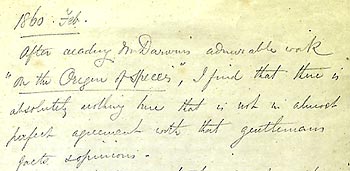 1860. Feb.
After reading Mr Darwin's admirable work
"On the Origin of Species", I find that there is
absolutely nothing here that is not in almost
perfect agreement with that gentlemans
facts & opinions.